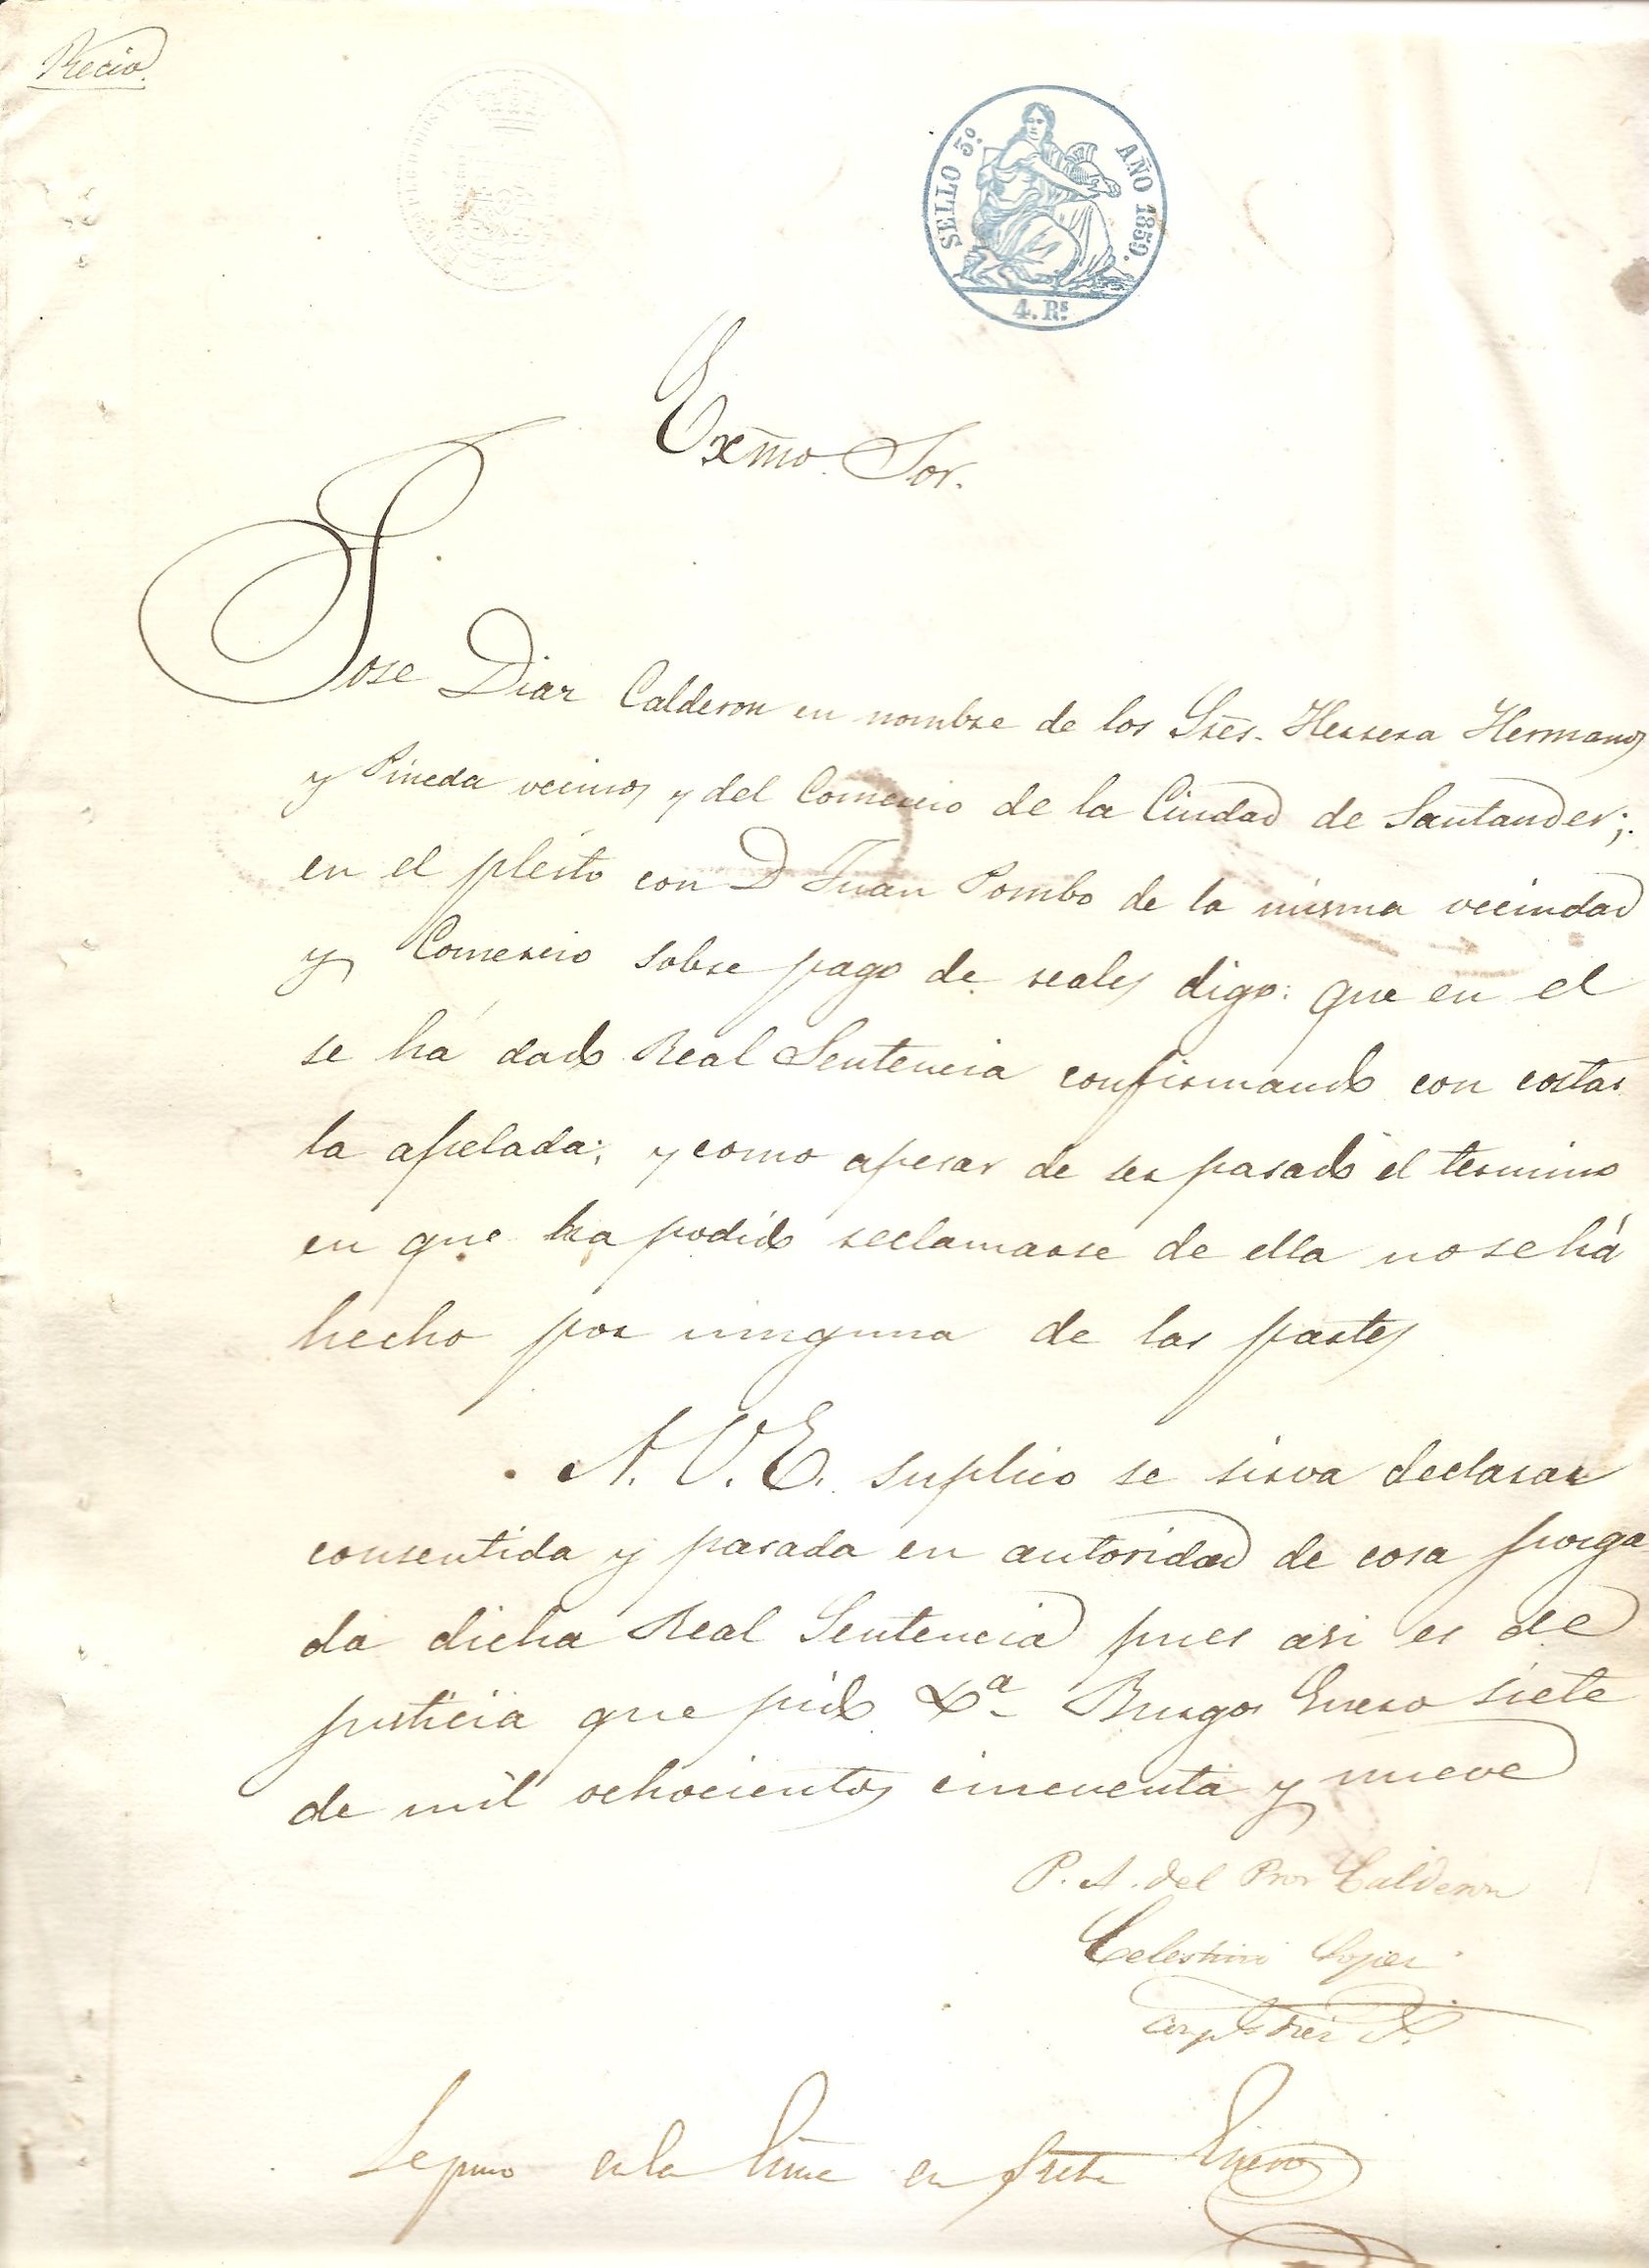 Recio.
SELLO 5º. AÑO 1859.
4. Rs.
Exmo. Sor.
Jose Diaz Calderon en nombre de los Sres. Herrera Hermanos
y Pineda vecinos y del Comercio de la Ciudad de Santander;
en el pleito con D Juan Pombo de la misma vecindad
y Comercio sobre pago de reales digo: que en el
se há dado Real Sentencia confirmando con costas
la apelada; y como apesar de ser pasado el termino
en que ha podido reclamarse de ella no se há
hecho por ninguna de las partes
A. V. E. suplico se sirva declarar
consentida y pasada en autoridad de cosa juzga
da dicha Real Sentencia pues asi es de
justicia que pido Xª Burgos Enero siete
de mil ochocientos cincuenta y nueve
P. A. del Pror Calderon
Celestino Lopez
en siete Enero